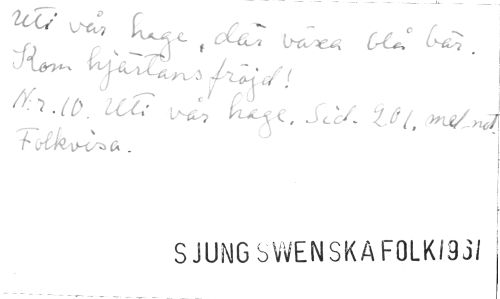 Uti vår hage, där växa blå bär.
Kom hjärtans fröjd!
N:r. 10. Uti vår hage. Sid. 201. med not.
Folkvisa.
SJUNG SWENSKA FOLK 1931